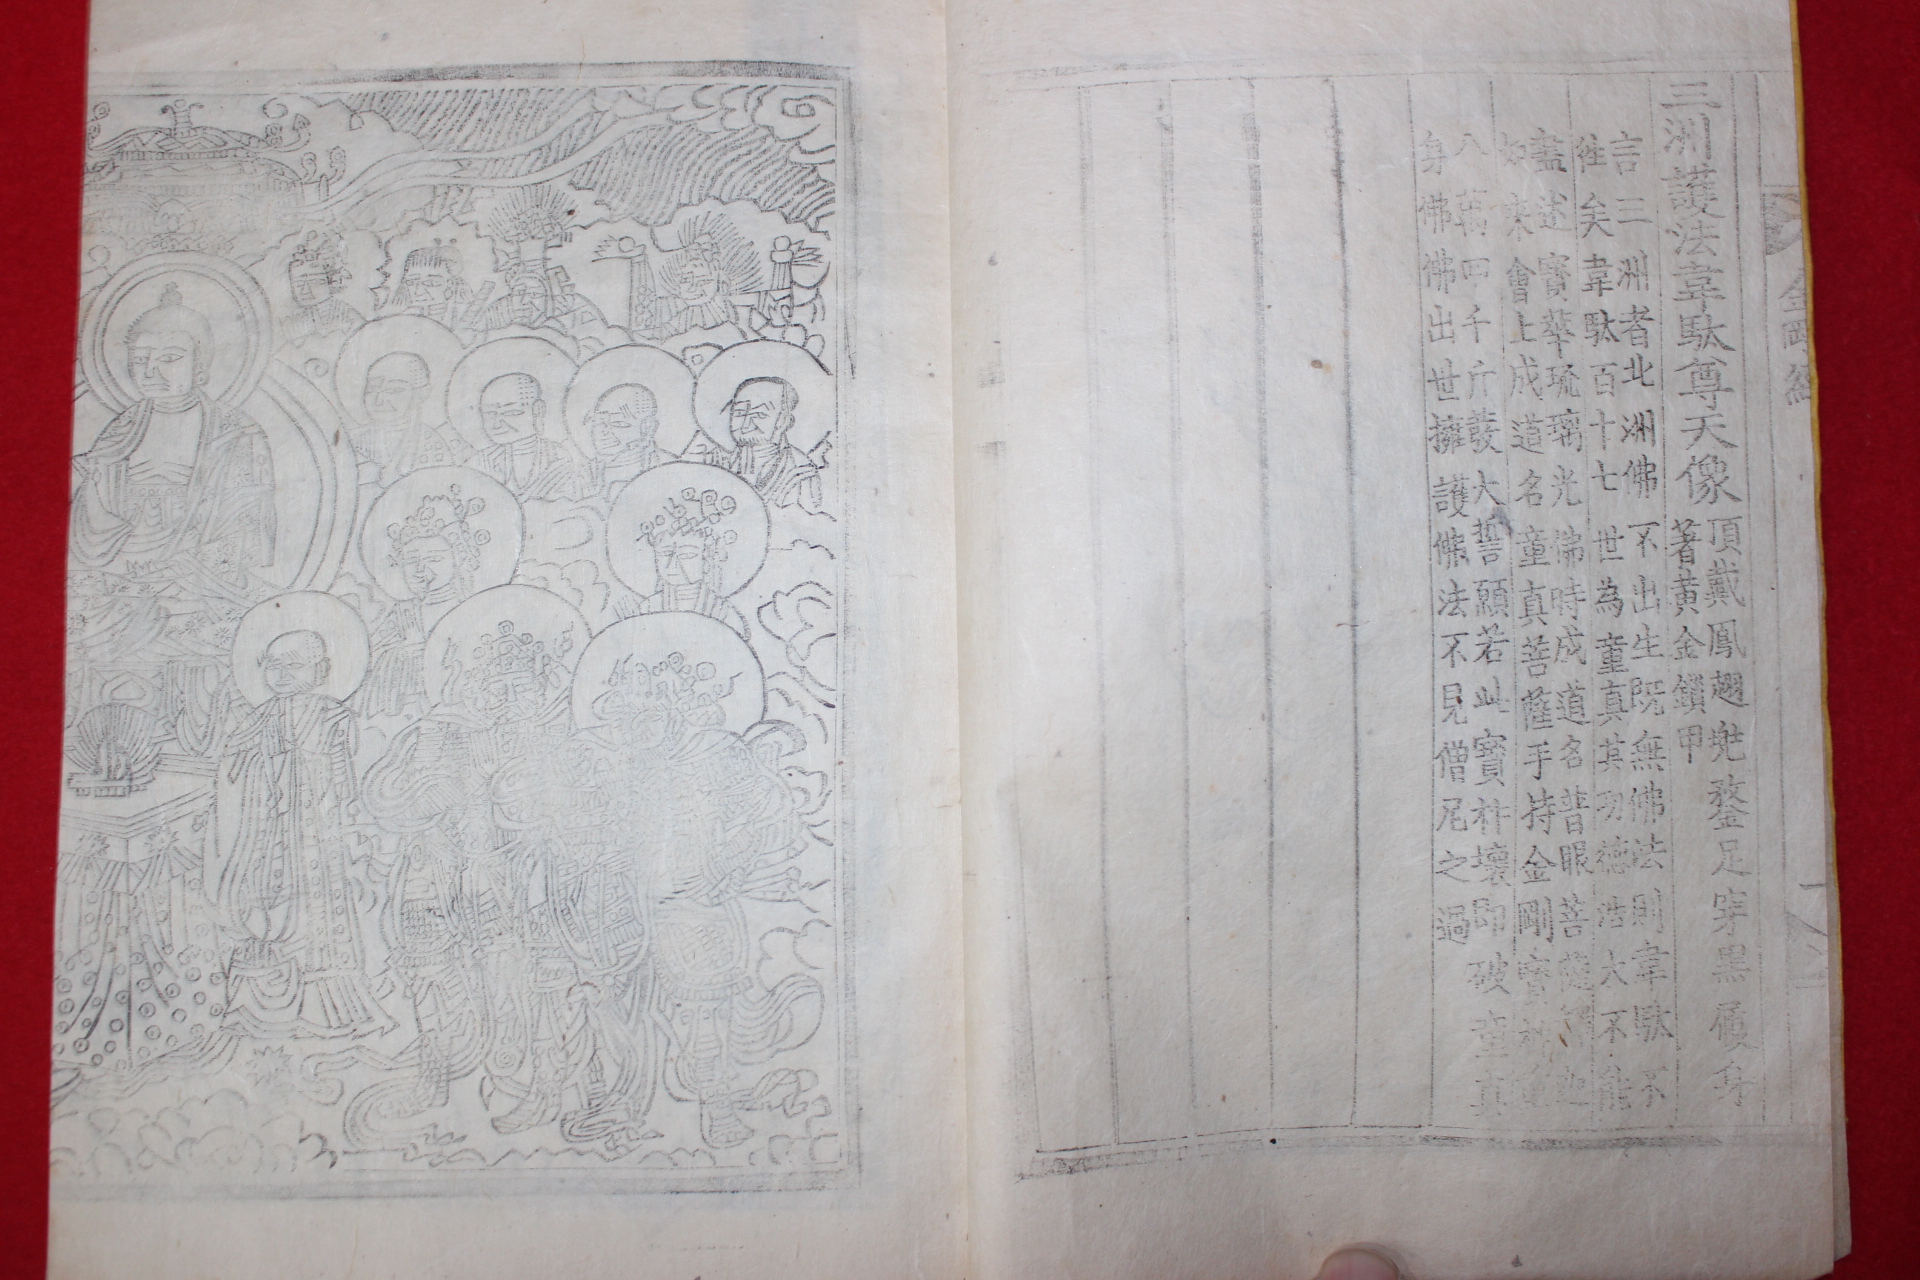 三洲護法韋駄尊天像
頂戴鳳翅兠鍪足穿黑履身
著黄金鎖甲
言三洲者北洲佛不出生既無佛法則韋駄不
徃矣韋駄百十七世為童真其功德浩大不能
盖述寳華琉璃光佛時成道名普眼菩薩
如來會上成道名童真菩薩手持金剛寳杵
八萬四千斤發大誓願若此寳杵壞即破童真
身佛佛出世擁護佛法不見僧尼之過
金剛經